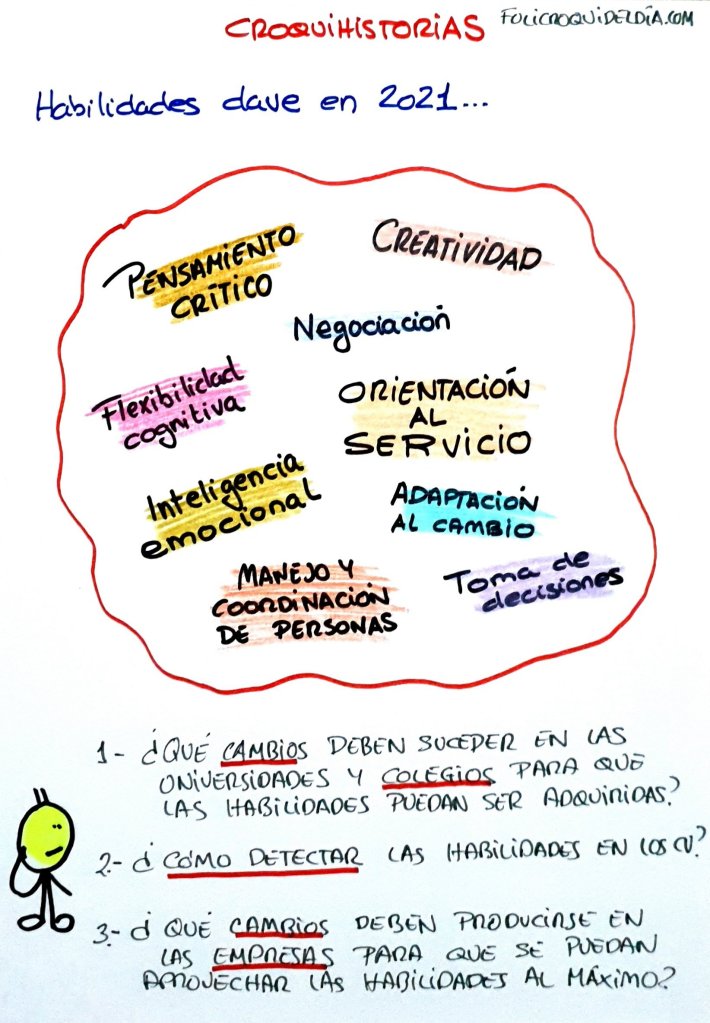 CROQUIHISTORIAS
FOLICROQUIDELDÍA.COM
Habilidades clave en 2021...
PENSAMIENTO
CRÍTICO
CREATIVIDAD
Negociación
Flexibilidad
cognitiva
ORIENTACIÓN
AL
SERVICIO
Inteligencia
emocional
ADAPTACIÓN
AL CAMBIO
MANEJO Y
COORDINACIÓN
DE PERSONAS
Toma de
decisiones
1- ¿QUÉ CAMBIOS DEBEN SUCEDER EN LAS
UNIVERSIDADES Y COLEGIOS PARA QUE
LAS HABILIDADES PUEDAN SER ADQUIRIDAS?
2.- ¿CÓMO DETECTAR LAS HABILIDADES EN LOS CV?
3.- ¿QUÉ CAMBIOS DEBEN PRODUCIRSE EN
LAS EMPRESAS PARA QUE SE PUEDAN
APROVECHAR LAS HABILIDADES AL MÁXIMO?